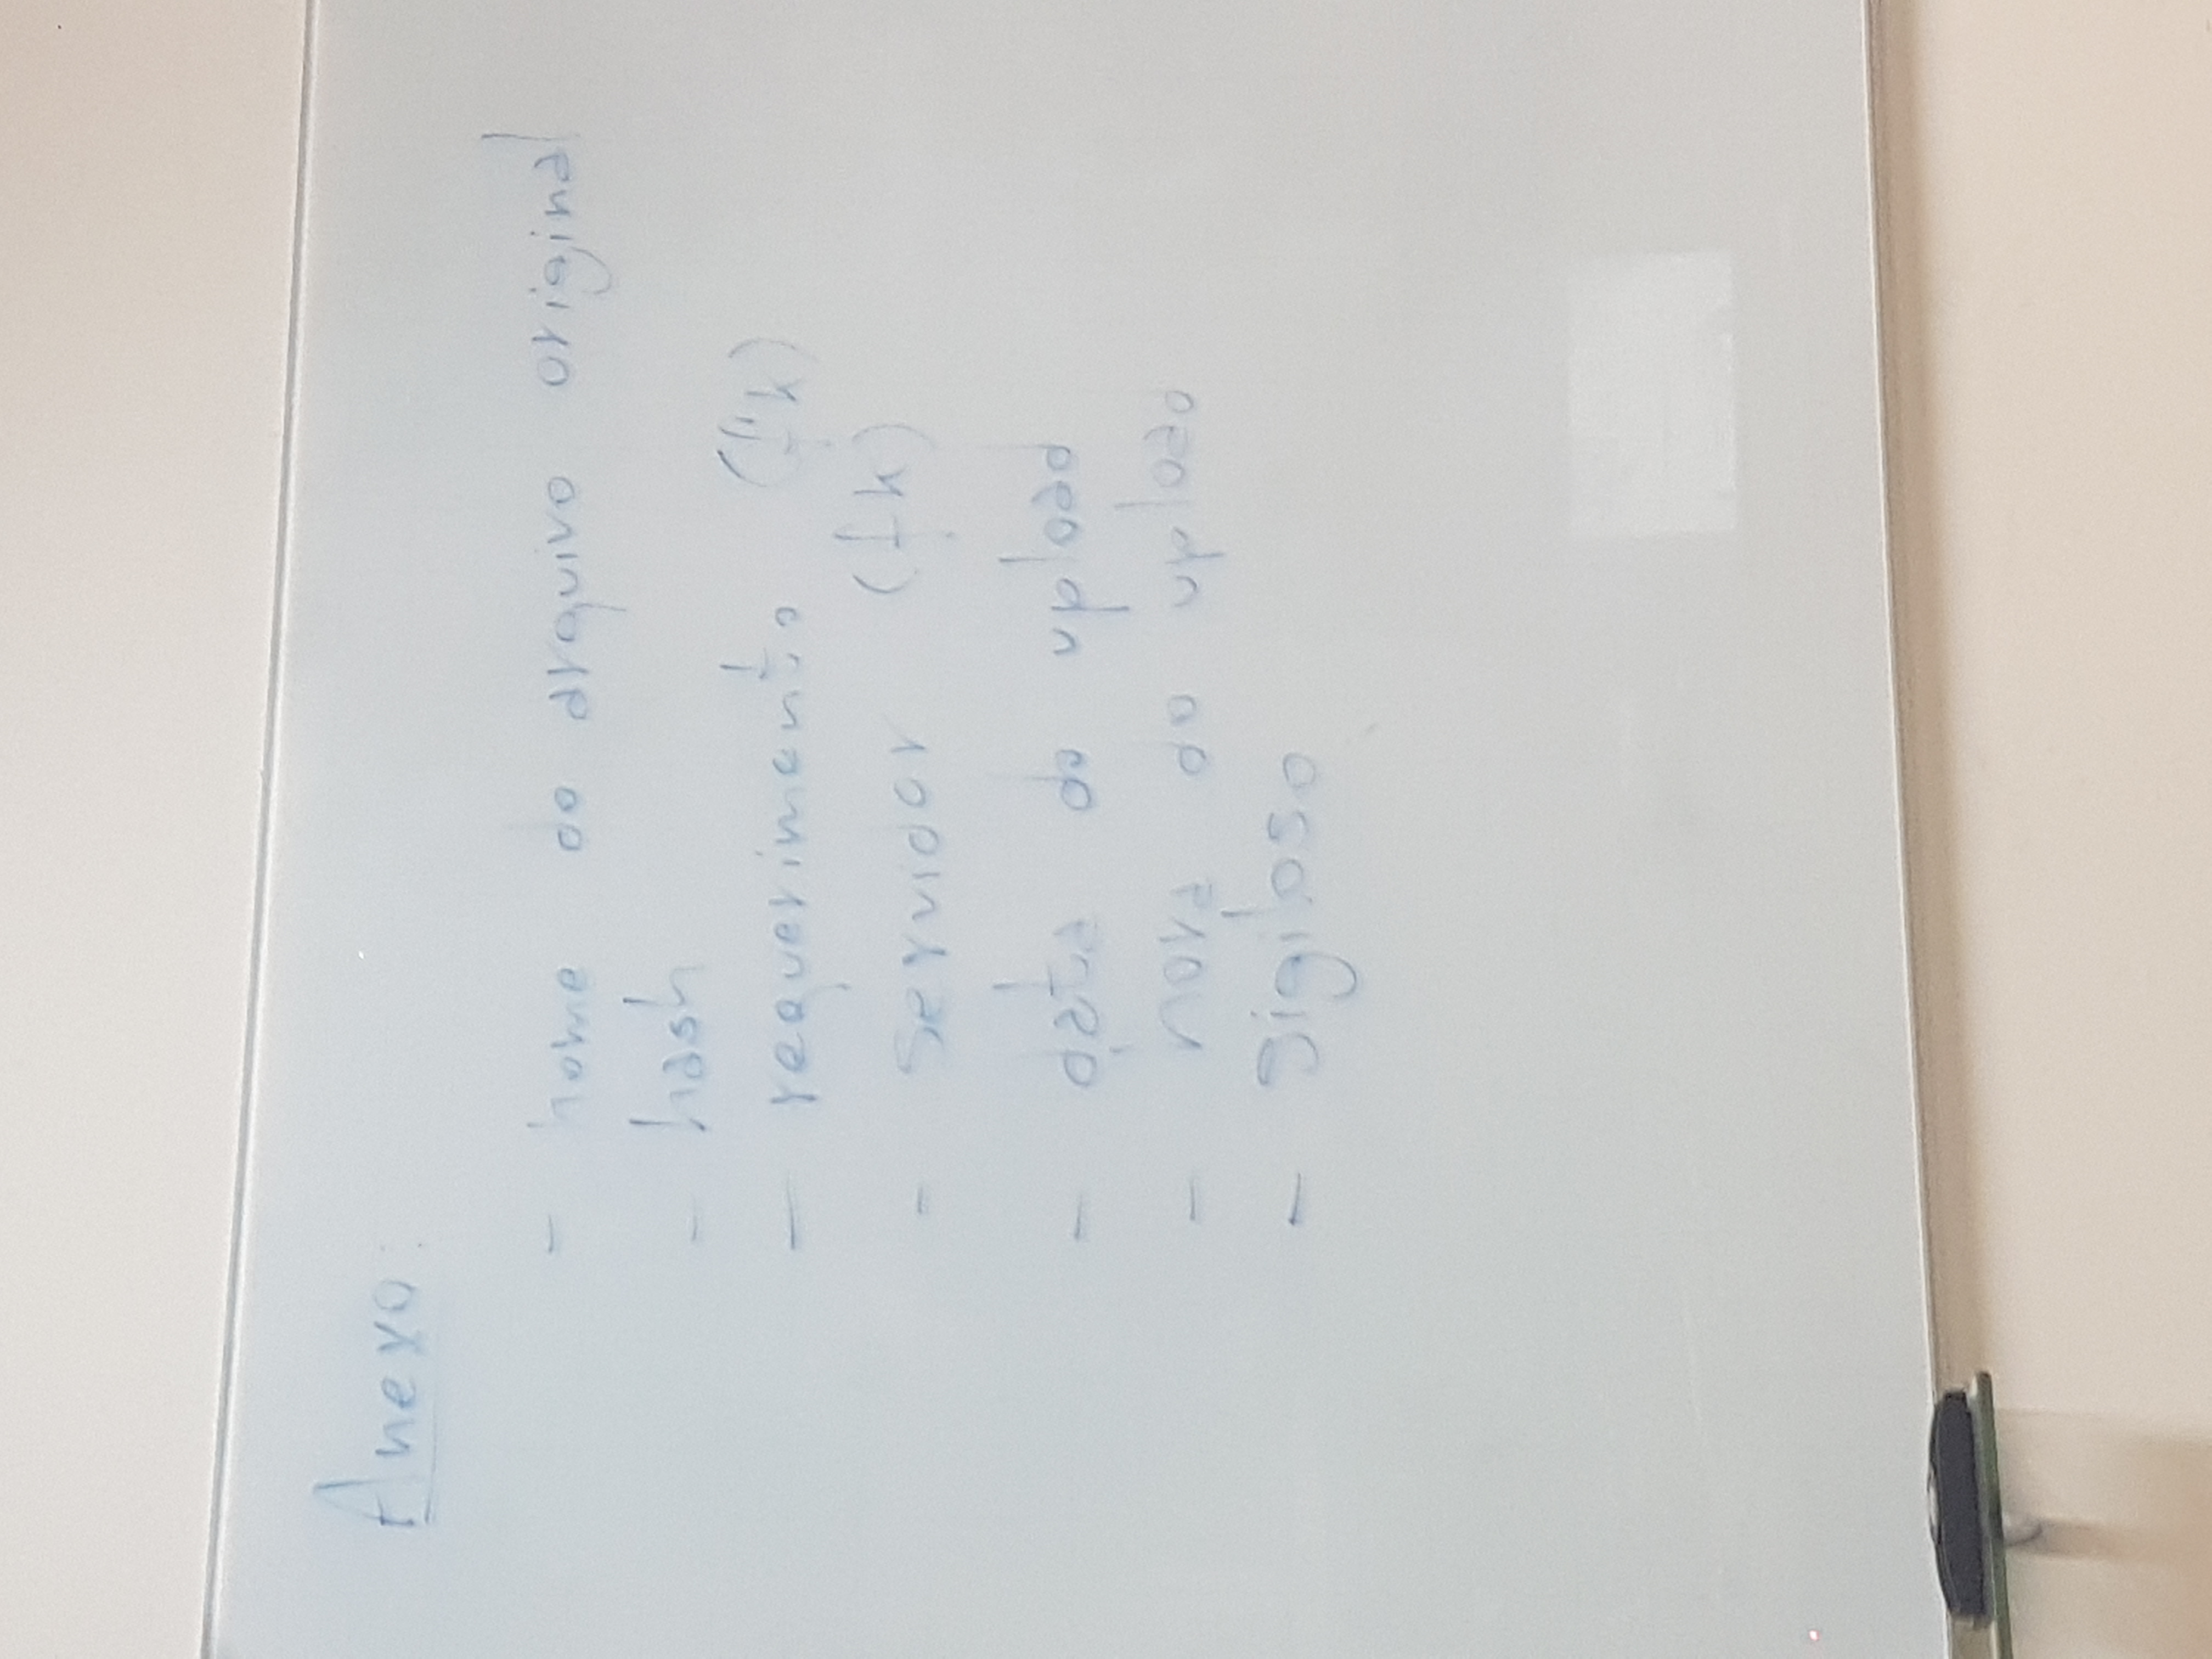 Anexo:
- nome do arquivo original
- hash
- requerimento (fk)
- servidor (fk)
- data do upload
- hora do upload
- sigiloso